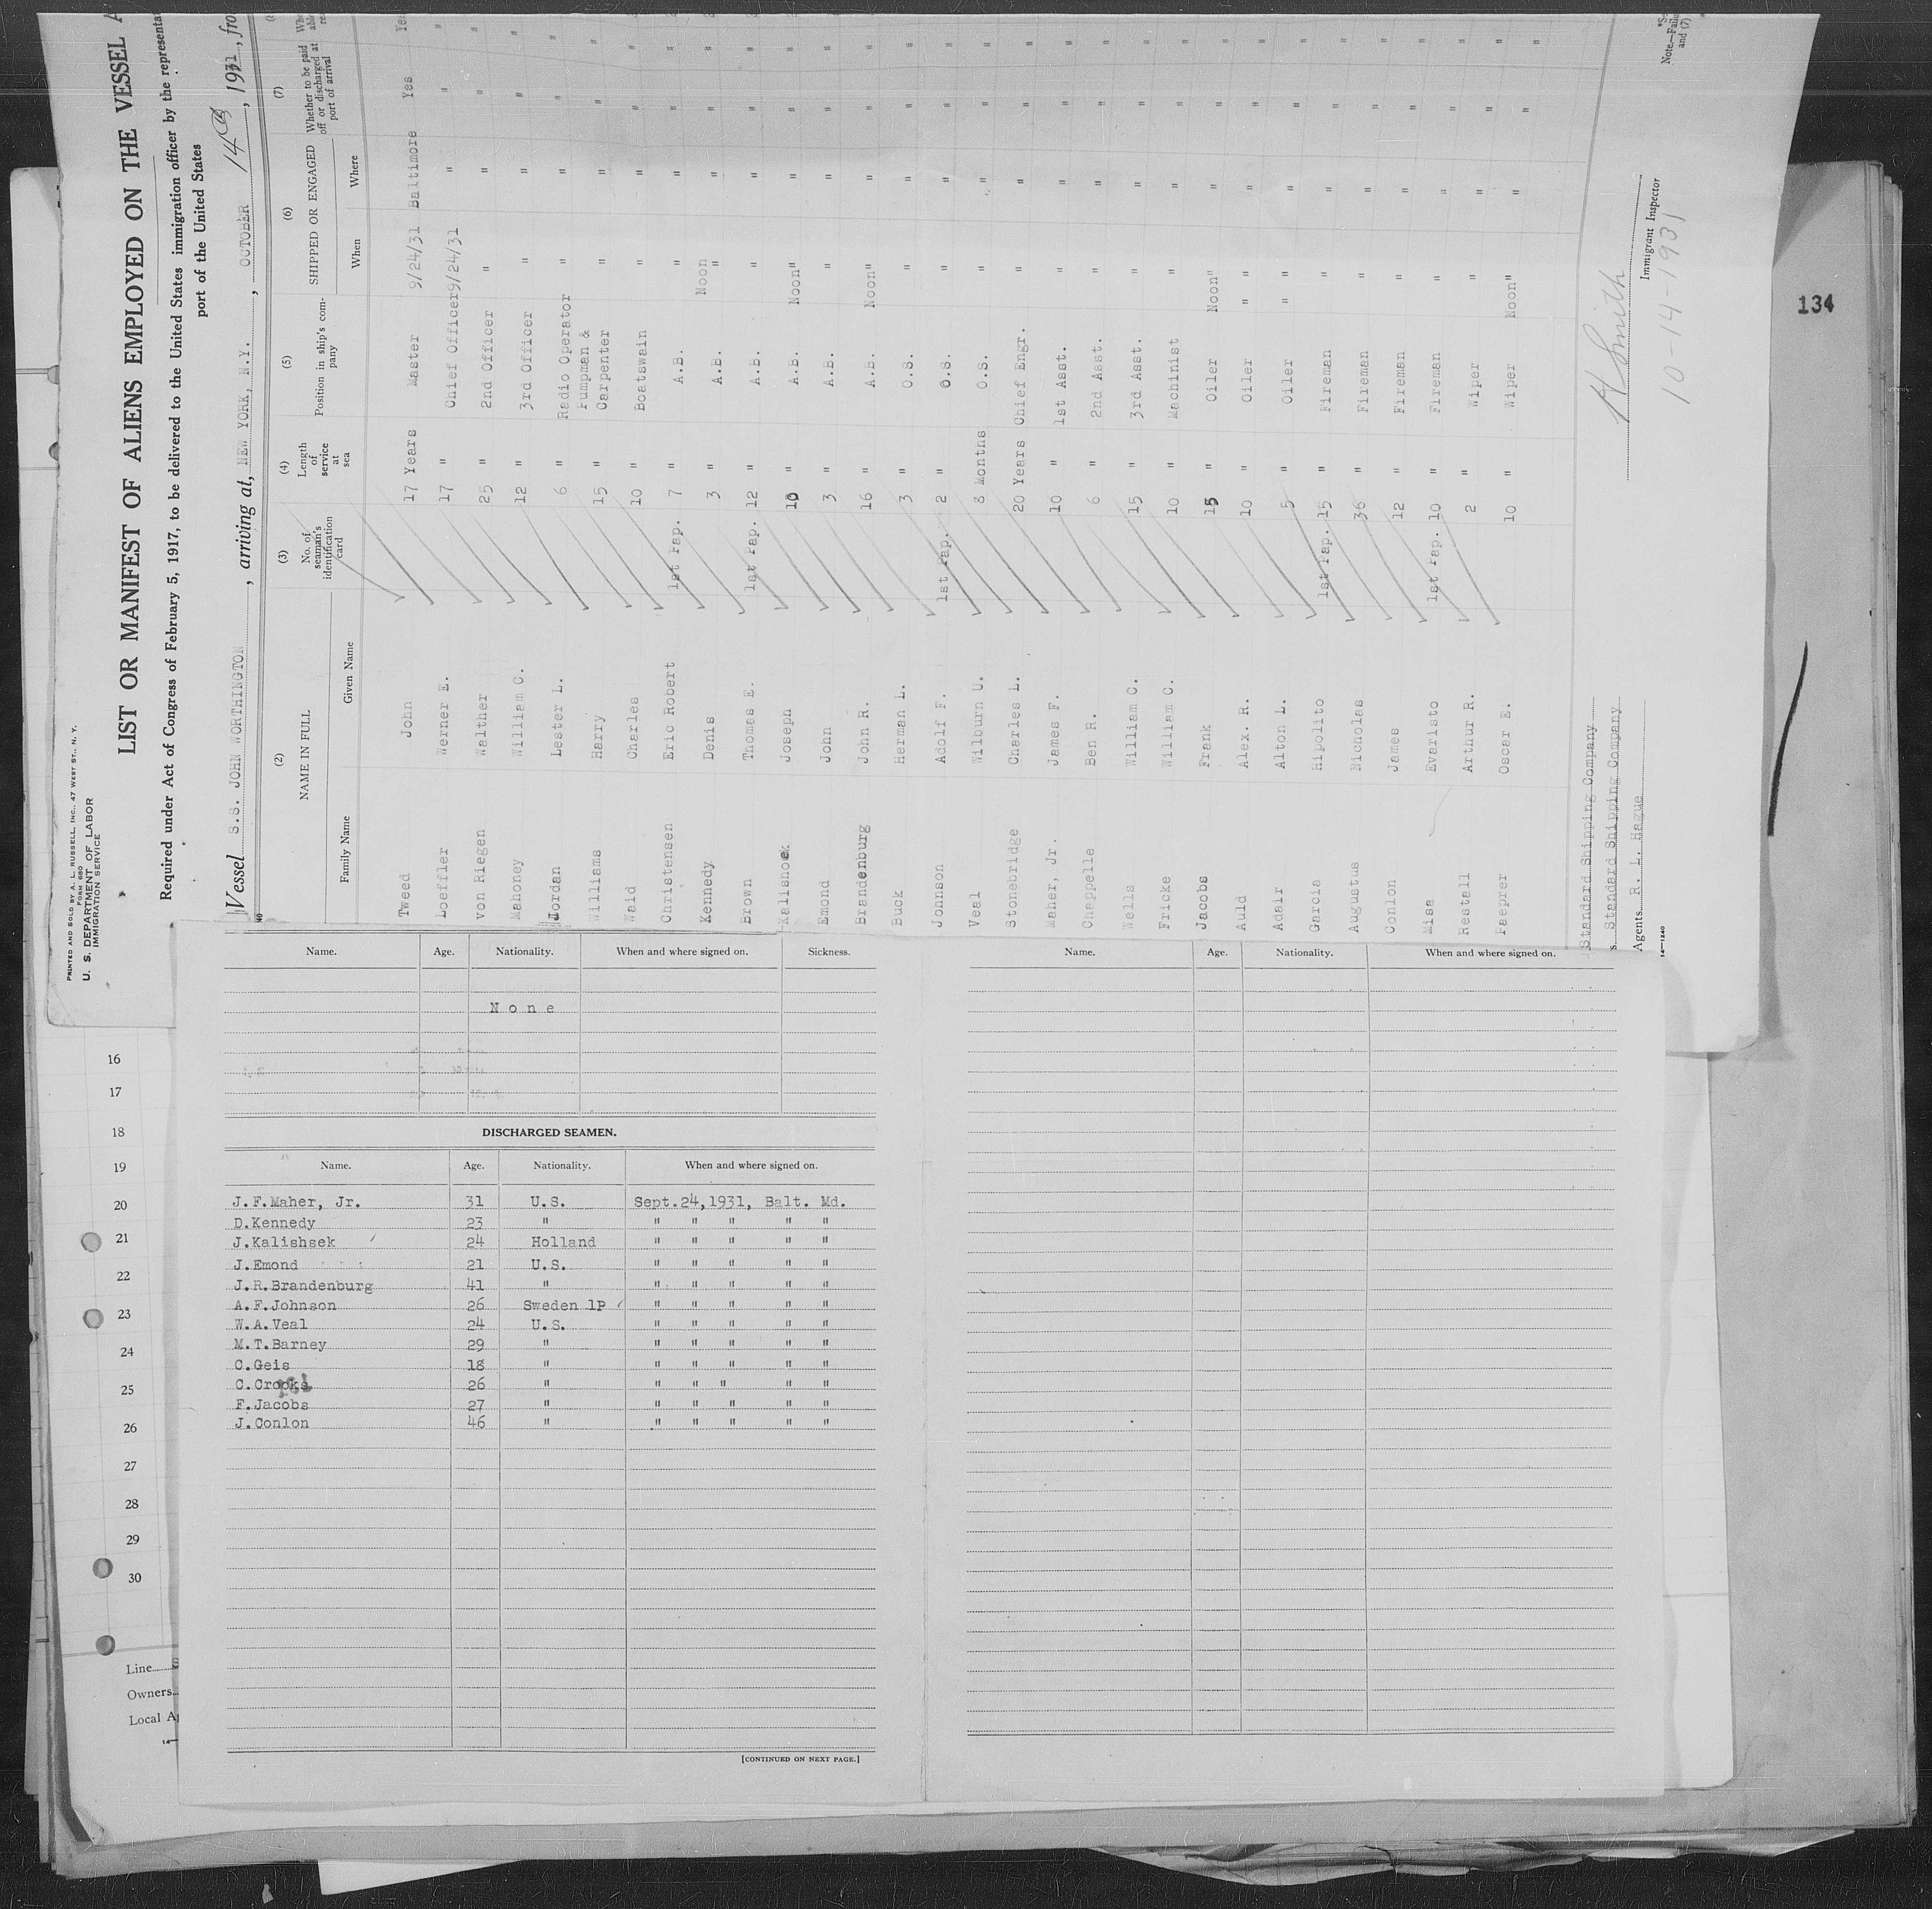 PRINTED AND SOLD BY A. L. RUSSELL, INC., 47 WEST ST., N. Y.
FORM 680
U. S. DEPARTMENT OF LABOR
IMMIGRATION SERVICE
LIST OR MANIFEST OF ALIENS EMPLOYED ON THE VESSEL A
Required under Act of Congress of February 5, 1917, to be delivered to the United States immigration officer by the representa
port of the United States
Vessel S.S. JOHN WORTHINGTON, arriving at, NEW YORK, N.Y., OCTOBER 14th, 1931, fro
(2) (3) (4) (5) (6) (7)
NAME IN FULL
Family Name Given Name
No. of seaman's identification card
Length of service at sea
Position in ship's company
SHIPPED OR ENGAGED
When Where
Whether to be paid off or discharged at port of arrival
Tweed John 17 Years Master 9/24/31 Baltimore Yes Yes
Loeffler Werner E. 17 " Chief Officer 9/24/31 " "
von Riegen Walther 25 " 2nd Officer " " "
Mahoney William C. 12 " 3rd Officer " " "
Jordan Lester L. 6 " Radio Operator " " "
Williams Harry 15 " Pumpman & Carpenter " " "
Waid Charles 10 " Boatswain " " "
Christensen Eric Robert 1st Pap. 7 " A.B. " " "
Kennedy Denis 3 " A.B. Noon " " "
Brown Thomas E. 1st Pap. 12 " A.B. " " "
Kalishoek Joseph 10 " A.B. Noon " " "
Emond John 3 " A.B. " " "
Brandenburg John R. 16 " A.B. Noon " " "
Buck Herman L. 3 " O.S. " " "
Johnson Adolf F. 1st Pap. 2 " O.S. " " "
Veal Wilburn U. 8 Months O.S. " " "
Stonebridge Charles L. 20 Years Chief Engr. " " "
Maher, Jr. James F. 10 " 1st Asst. " " "
Chappelle Ben R. 6 " 2nd Asst. " " "
Wells William C. 15 " 3rd Asst. " " "
Fricke William C. 10 " Machinist " " "
Jacobs Frank 15 " Oiler Noon " " "
Auld Alex. R. 10 " Oiler " " " "
Adair Alton L. 5 " Oiler " " " "
Garcia Hipolito 1st Pap. 15 " Fireman " " "
Augustus Nicholas 36 " Fireman " " "
Conlon James 12 " Fireman " " "
Misa Evaristo 1st Pap. 10 " Fireman " " "
Restall Arthur R. 2 " Wiper " " "
Paeprer Oscar E. 10 " Wiper Noon " " "
Standard Shipping Company
s. Standard Shipping Company
Agents R. L. Hague
14—1240
H Smith
Immigrant Inspector
10-14-1931
Note.—Failu
and (7)
134
Name. Age. Nationality. When and where signed on. Sickness.
None
DISCHARGED SEAMEN.
Name. Age. Nationality. When and where signed on.
J.F.Maher, Jr. 31 U.S. Sept.24,1931, Balt. Md.
D.Kennedy 23 " " " " " "
J.Kalishsek 24 Holland " " " " "
J.Emond 21 U.S. " " " " "
J.R.Brandenburg 41 " " " " " "
A.F.Johnson 26 Sweden 1P " " " " "
W.A.Veal 24 U.S. " " " " "
M.T.Barney 29 " " " " " "
C.Geis 18 " " " " " "
C.Crooks 26 " " " " " "
F.Jacobs 27 " " " " " "
J.Conlon 46 " " " " " "
[CONTINUED ON NEXT PAGE.]
Name. Age. Nationality. When and where signed on.
16
17
18
19
20
21
22
23
24
25
26
27
28
29
30
Line S
Owners
Local A
14—